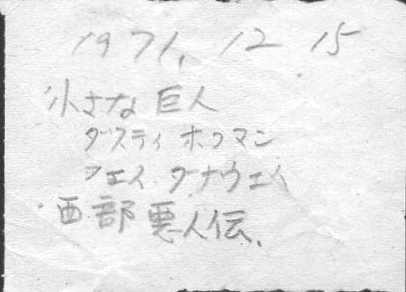 1971. 12 15
小さな巨人
ダスティ ホフマン
フェイ.ダナウェイ
西部悪人伝.